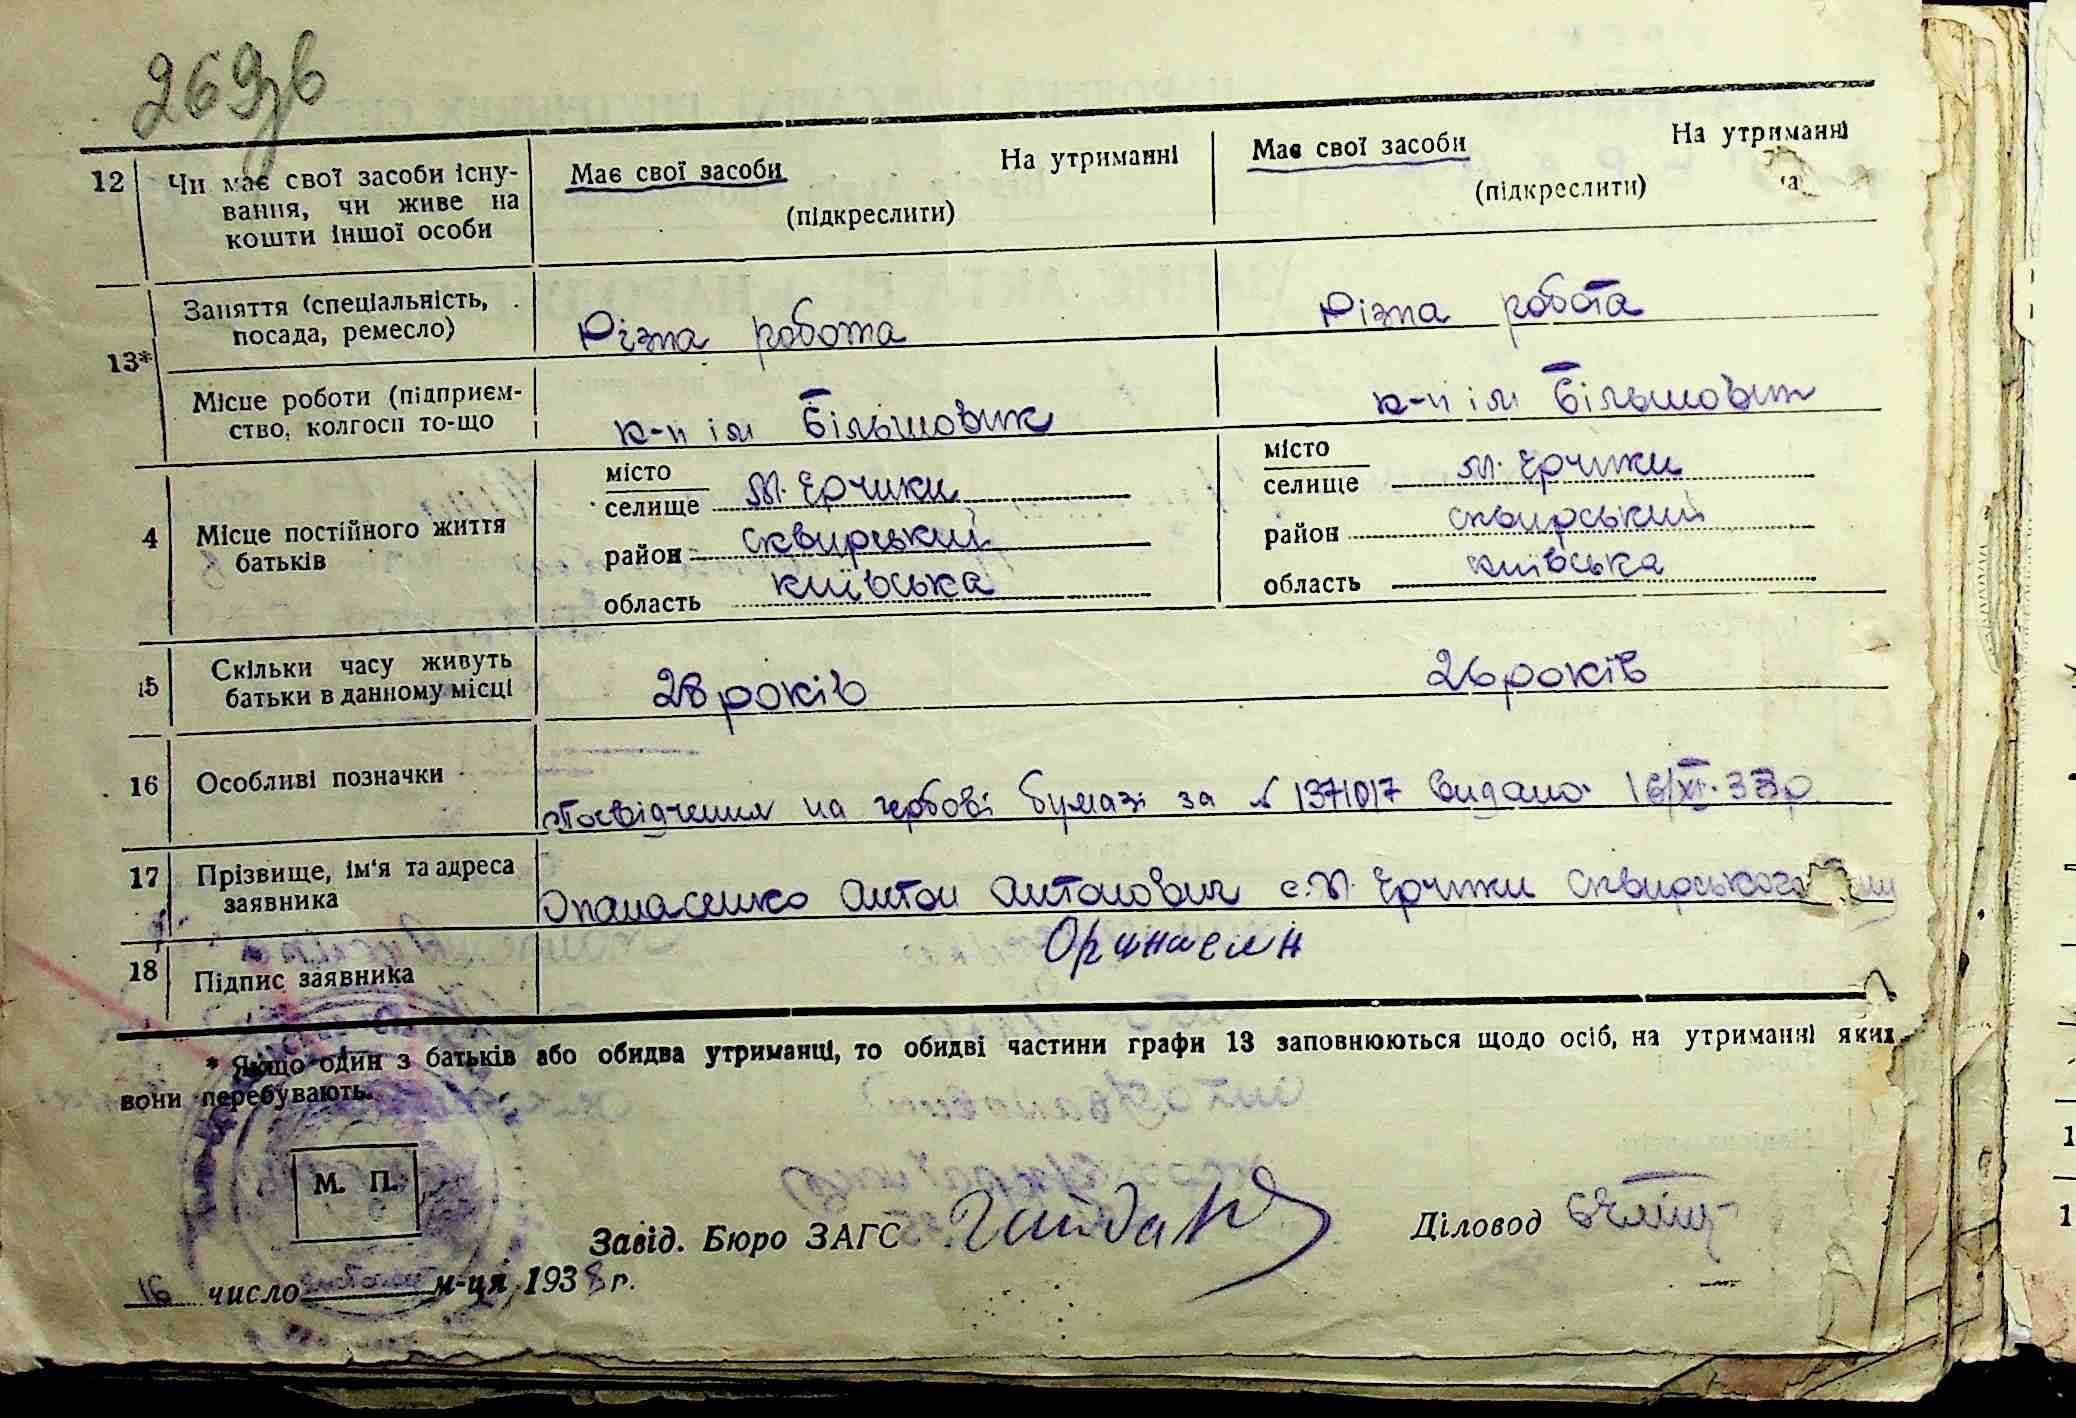 269зв
12 Чи має свої засоби існу- Має свої засоби На утриманні Має свої засоби На утриманні
вання, чи живе на (підкреслити) (підкреслити)
кошти іншої особи
13* Заняття (спеціальність, Різна робота Різна робота
посада, ремесло)
Місце роботи (підприєм- к-п ім Більшовик к-п ім Більшовик
ство, колгосп то-що
4 Місце постійного життя батьків
місто
селище М. Єрчики
район сквирський
область київська
місто
селище М. Єрчики
район сквирський
область київська
15 Скільки часу живуть 28 років 26 років
батьки в данному місці
16 Особливі позначки Посвідчення на гербові бумазі за № 1371017 видано 16/XI-38р
17 Прізвище, ім'я та адреса Опанасенко Антон Антонович с. М. Єрчики Сквирського
заявника
18 Підпис заявника
* Якщо один з батьків або обидва утриманці, то обидві частини графи 13 заповнюються щодо осіб, на утриманні яких
вони перебувають.
М. П.
Завід. Бюро ЗАГС Діловод
16 число листопад м-ця 1938 г.